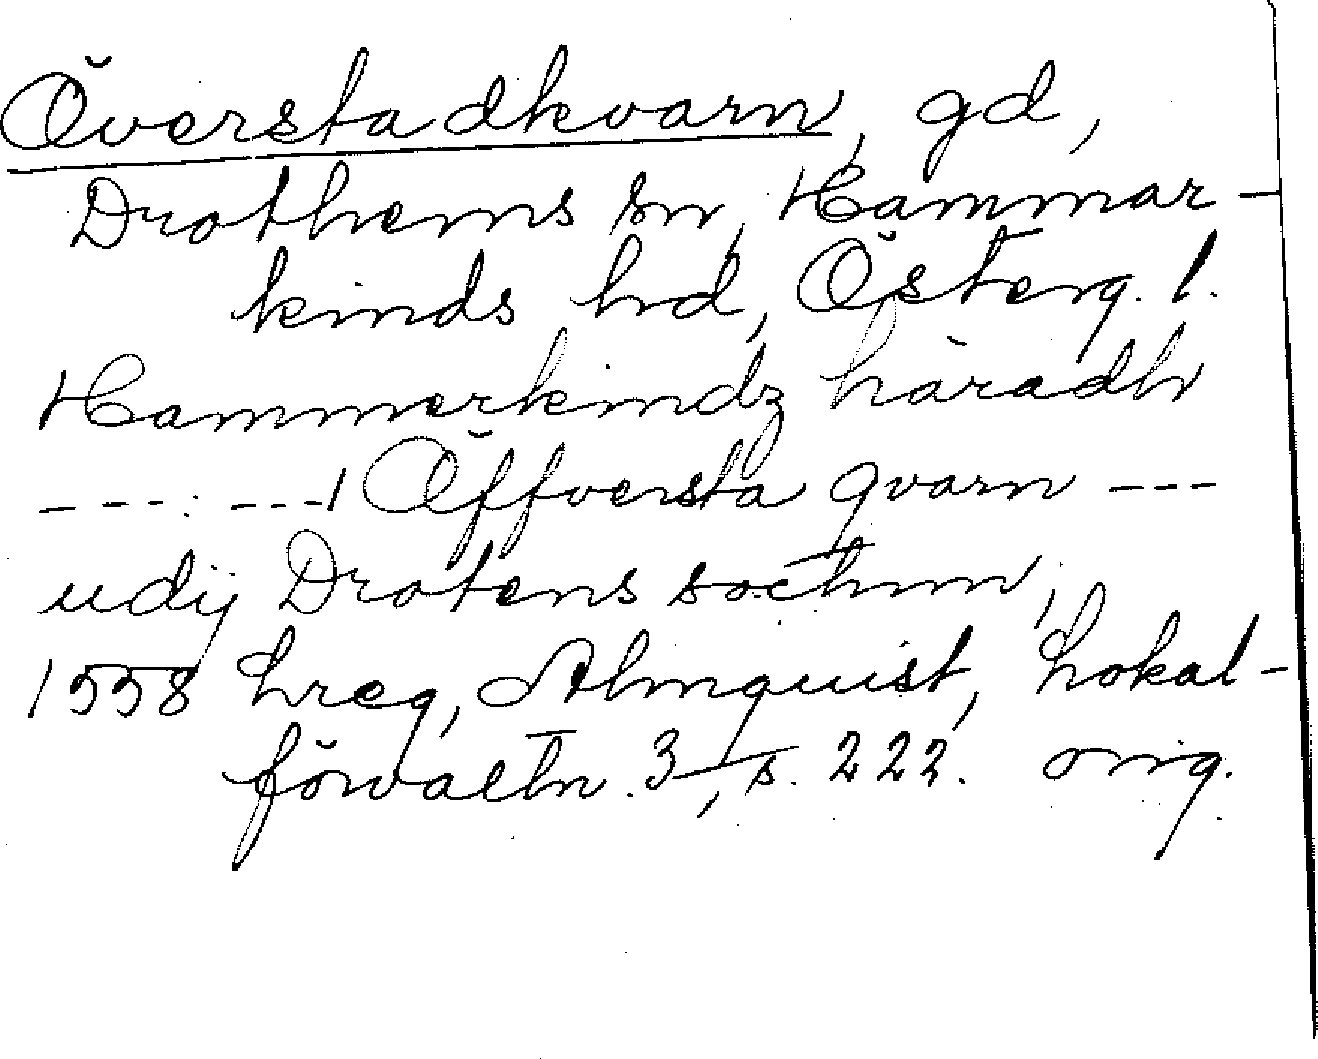 Överstadkvarn, gd,
Drothems sn, Hammar-
kinds hd, Österg. l.
Hammerkindz häradh
---:---1 Öffversta qvarn ---
udij Drotens sochnn,
1558 hreg, Almquist, Lokal-
förvaltn. 3, s. 222. orig.